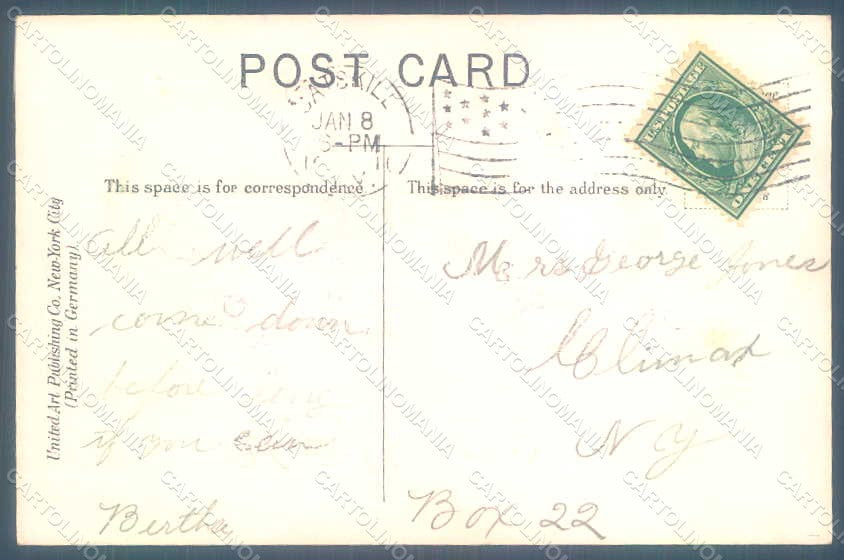 POST CARD
CATSKILL
JAN 8
6-PM
N.Y.
U.S. POSTAGE
ONE CENT
This space is for correspondence.
This space is for the address only.
United Art Publishing Co. New-York City
(Printed in Germany).
All well
come down
before long
if you can
Bertha
Mrs George Jones
Climax
N Y
Box 22
CARTOLINOMANIA